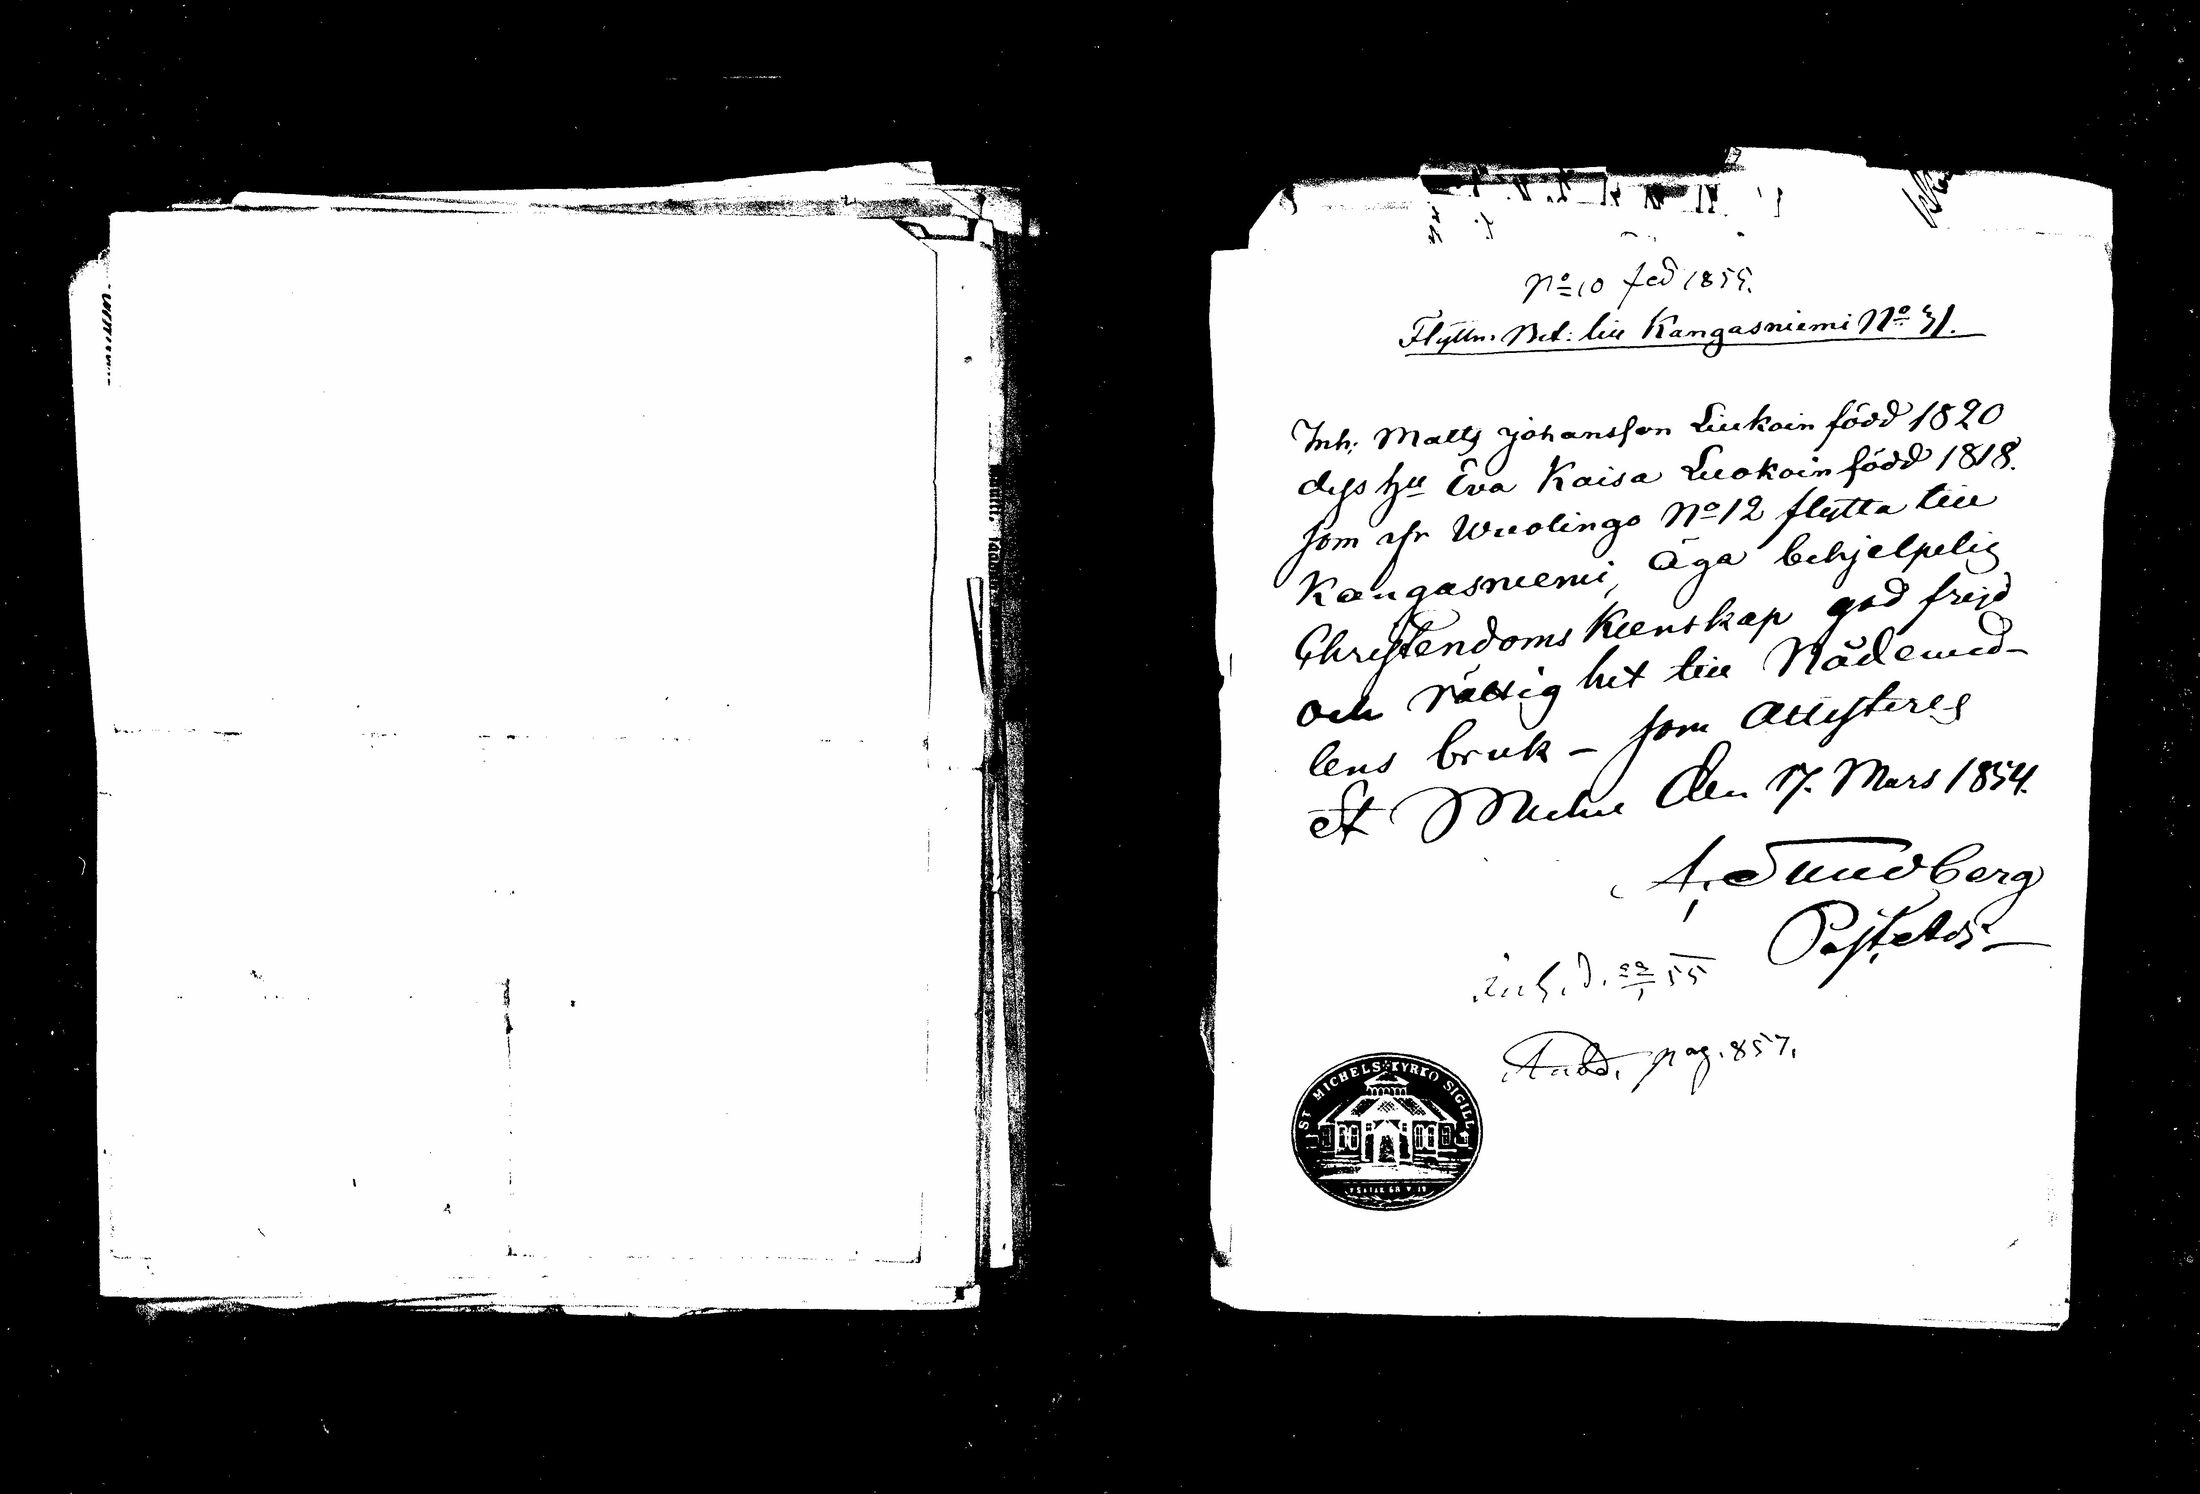 No 10 feb 1855.
Flyttn. Bet: till Kangasniemi No 31.
Inh: Matts Johansson Liukoin född 1820
dess hu Eva Kaisa Luokoin född 1818.
som ifr Wuolingo No 12 flytta till
Kangasniemi, äga behjelpelig
Christendoms Kunskap god frejd
och rättighet till Nådemed-
lens bruk – som Attesteras
St Michel den 17. Mars 1854.
A. Sundberg
Ank. d. 22/1 55
pag. 857.
ST MICHELS KYRKO SIGILL